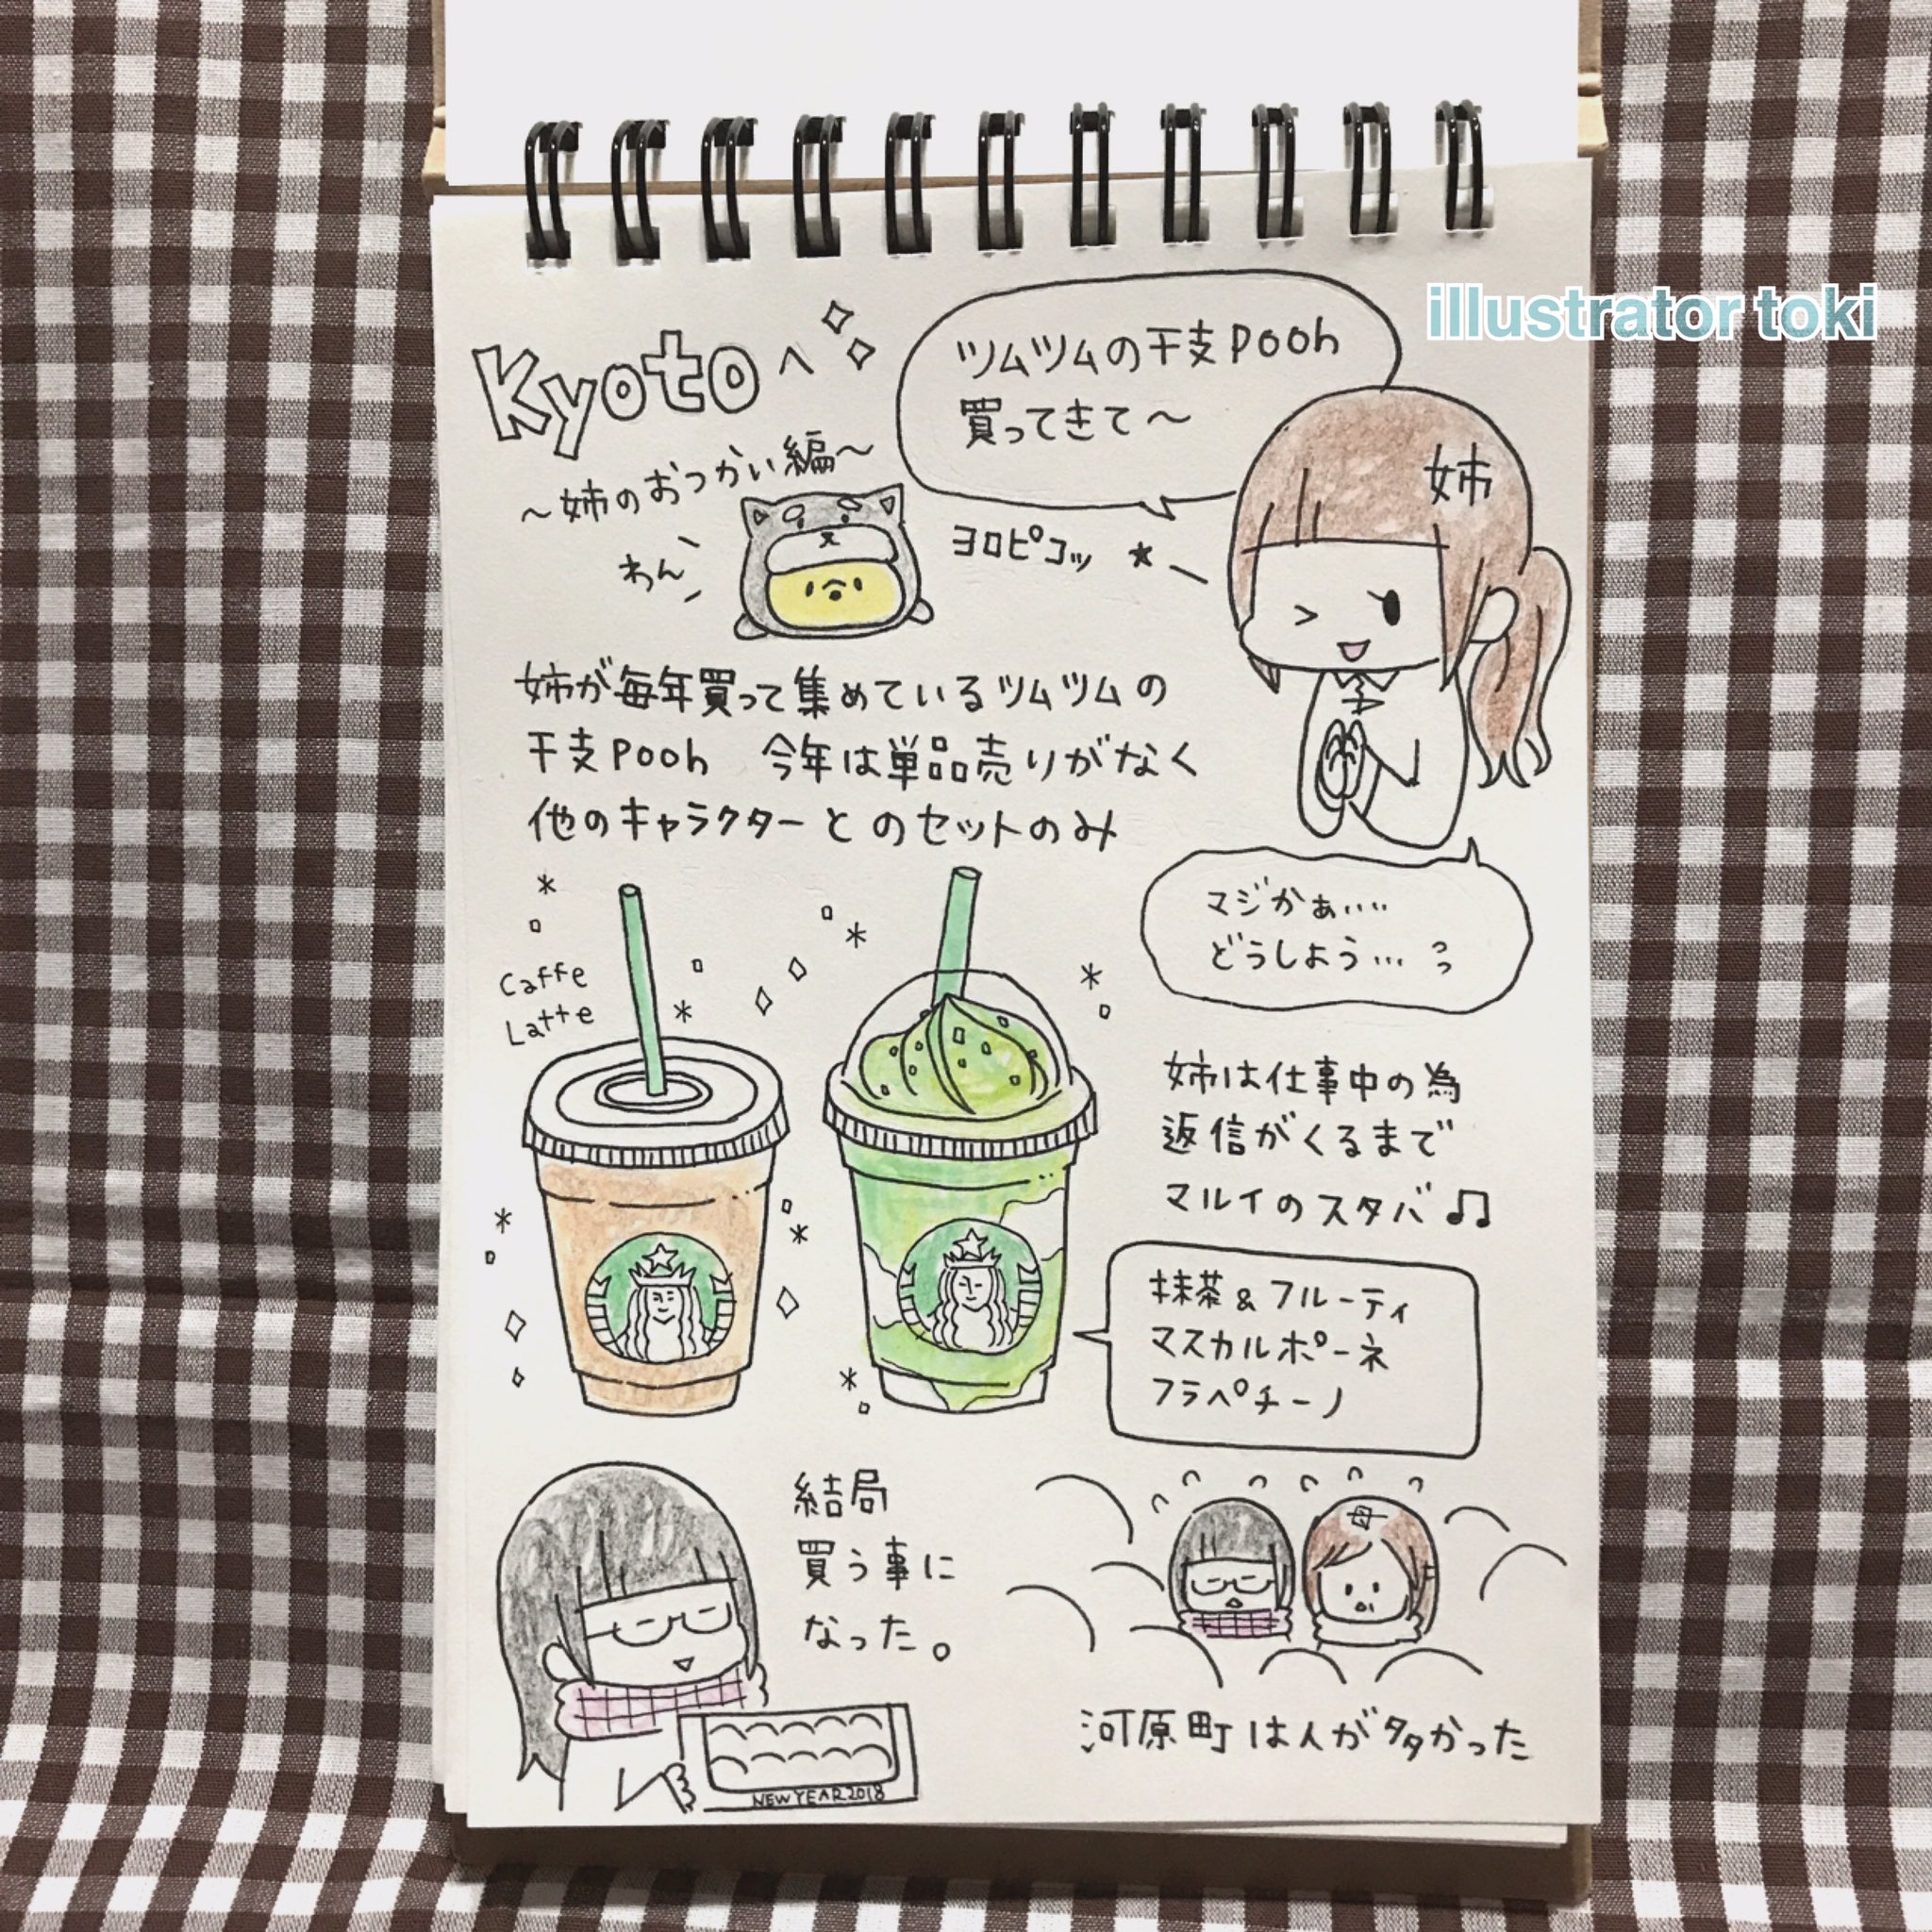 illustrator toki
Kyotoへ
～姉のおつかい編～
ツムツムの干支pooh
買ってきて～
姉
わん
ヨロピコッ ★
姉が毎年買って集めているツムツムの
干支pooh 今年は単品売りがなく
他のキャラクターとのセットのみ
マジかぁ‥‥
どうしよう…
Caffe
Latte
姉は仕事中の為
返信がくるまで
マルイのスタバ♫
抹茶&フルーティ
マスカルポーネ
フラペチーノ
結局
買う事に
なった。
NEW YEAR 2018
母
河原町は人が多かった